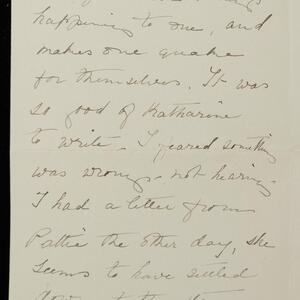 happening to one, and
makes one quake
for themselves. It was
so good of Katharine
to write – I feared something
was wrong – not hearing.
I had a letter from
Pattie the other day, she
seems to have settled
down